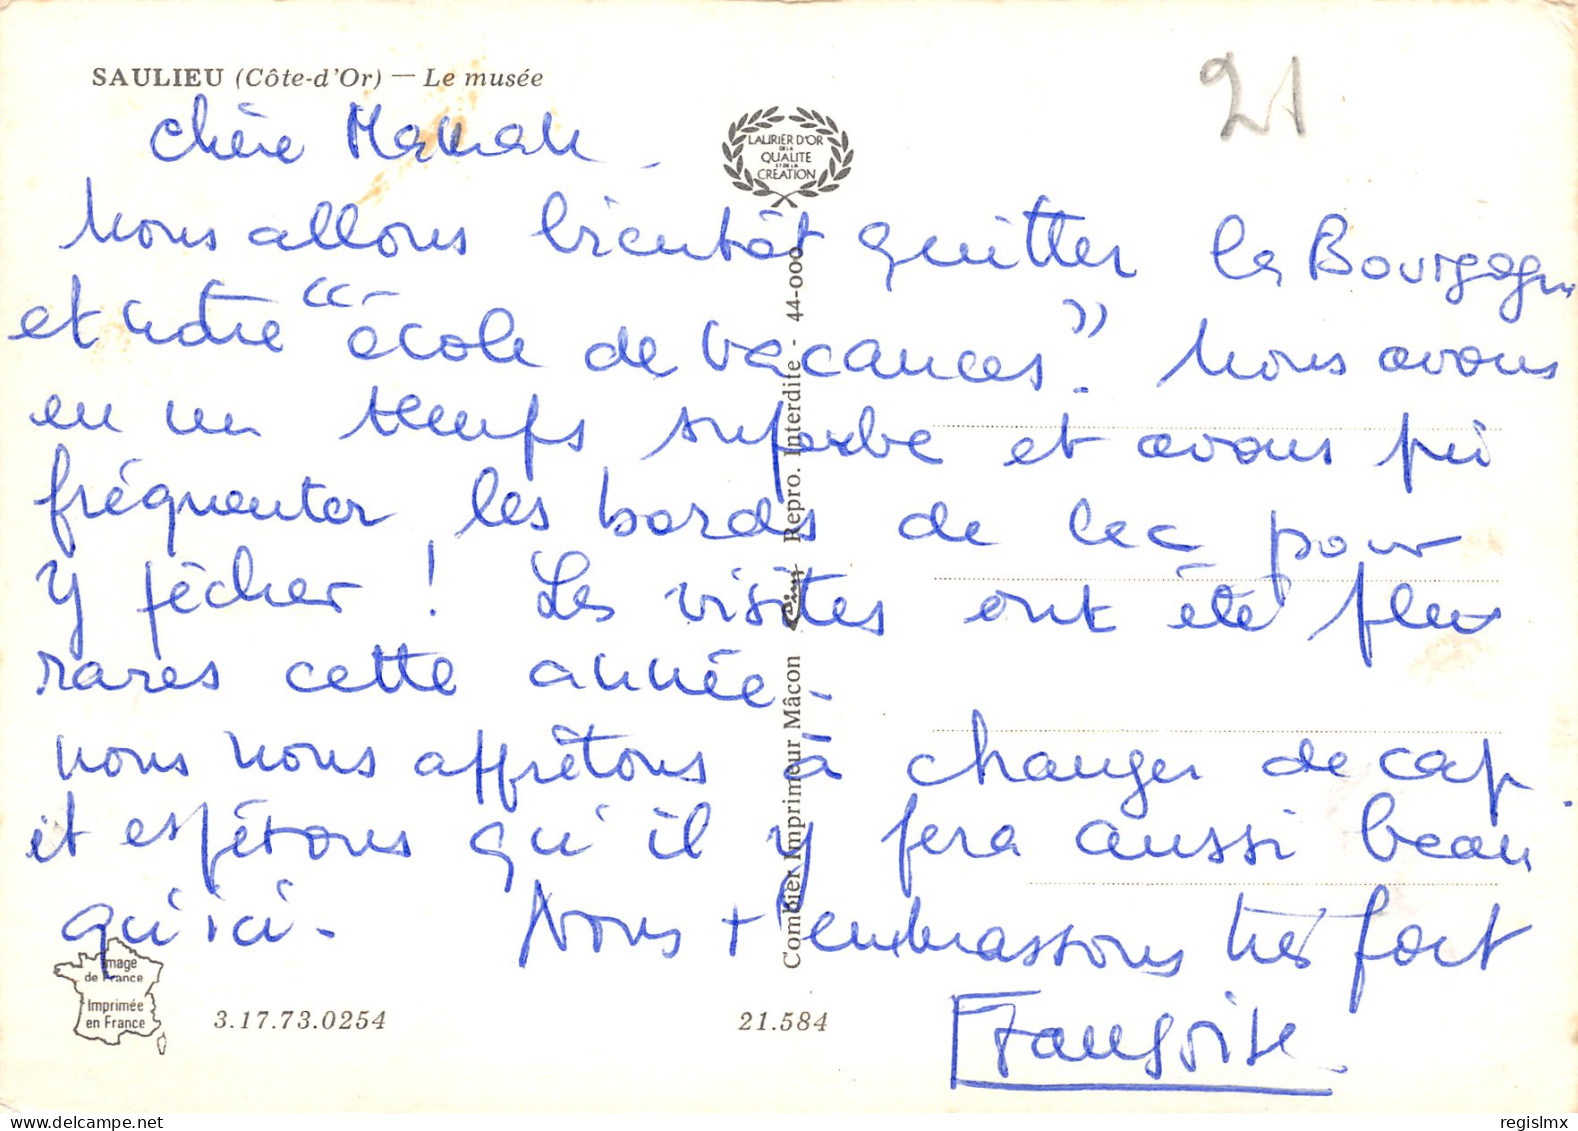 SAULIEU (Côte-d'Or) — Le musée
21
LAURIER D'OR
DE LA
QUALITE
ET DE LA
CREATION
chère
Nous allons bientôt quitter la Bourgogne
et notre "école de vacances". Nous avons
eu un temps superbe et avons pu
fréquenter les bords de lac pour
y pêcher ! Les visites ont été plus
rares cette année.
nous nous apprêtons à changer de cap.
et espérons qu'il y fera aussi beau
qu'ici. Nous t'embrassons très fort
Françoise
Combier Imprimeur Mâcon Cim Repro. Interdite - 44-000
Image
de France
Imprimée
en France
3.17.73.0254
21.584
regislmx